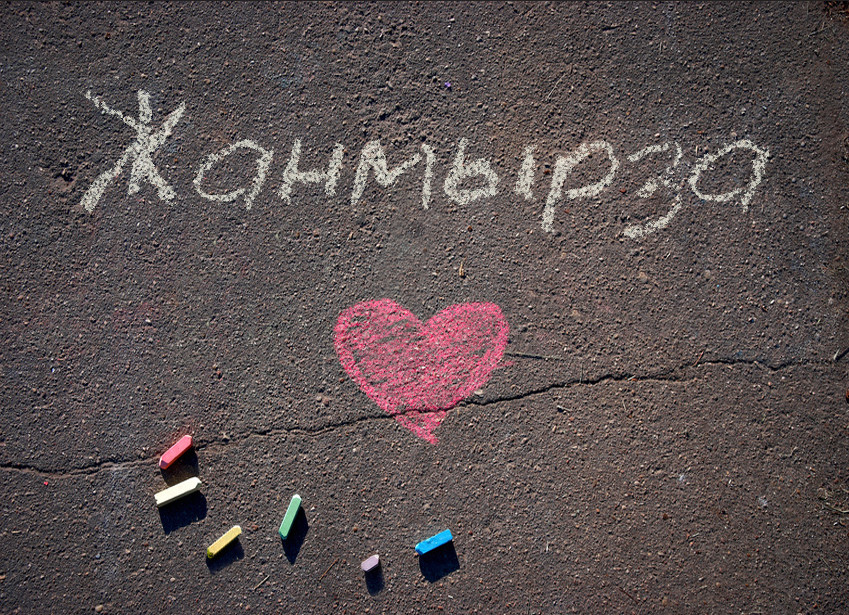 Жанмырза